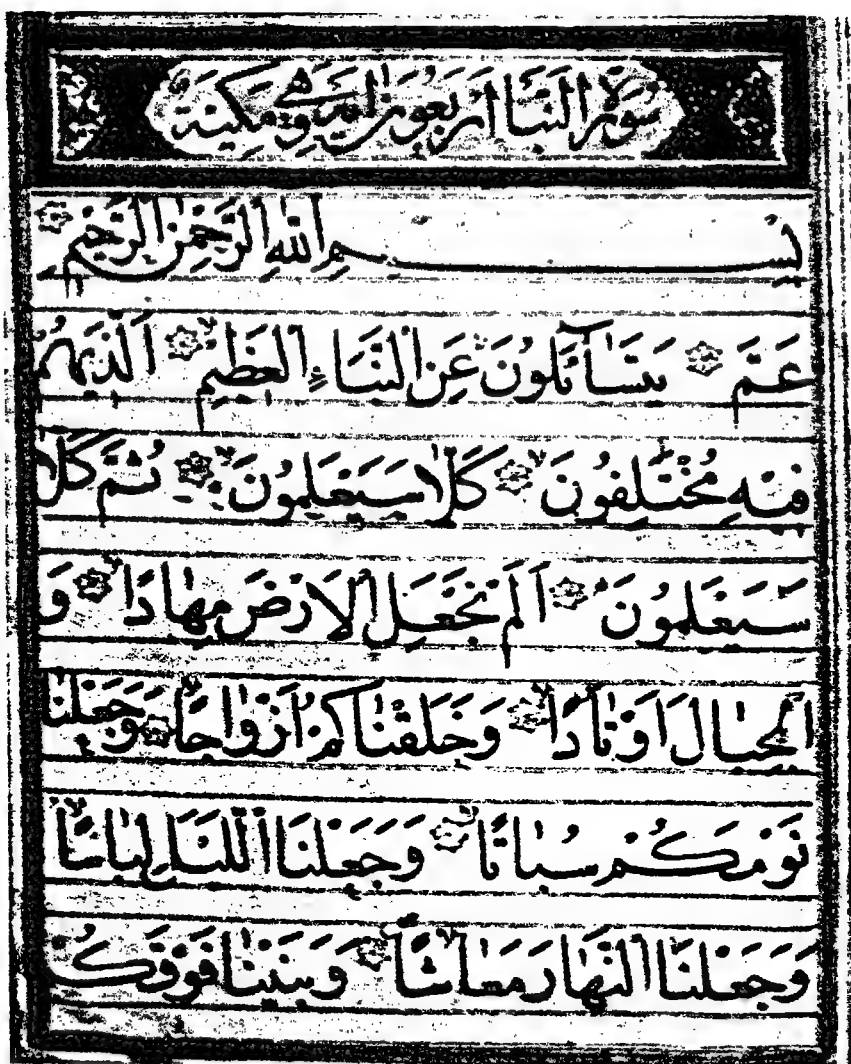 سورة النبأ اربعون آية وهي مكية
بسم الله الرحمن الرحيم
عَمَّ يَتَسَآئَلُونَ عَنِ النَّبَاءِ الْعَظِيمِ اَلَّذِي هُمْ
فِيهِ مُخْتَلِفُونَ كَلَّا سَيَعْلَمُونَ ثُمَّ كَلَّا
سَيَعْلَمُونَ اَلَمْ نَجْعَلِ الْاَرْضَ مِهَادًا وَ
الْجِبَالَ اَوْتَادًا وَخَلَقْنَاكُمْ اَزْوَاجًا وَجَعَلْنَا
نَوْمَكُمْ سُبَاتًا وَجَعَلْنَا اللَّيْلَ لِبَاسًا
وَجَعَلْنَا النَّهَارَ مَعَاشًا وَبَنَيْنَا فَوْقَكُمْ